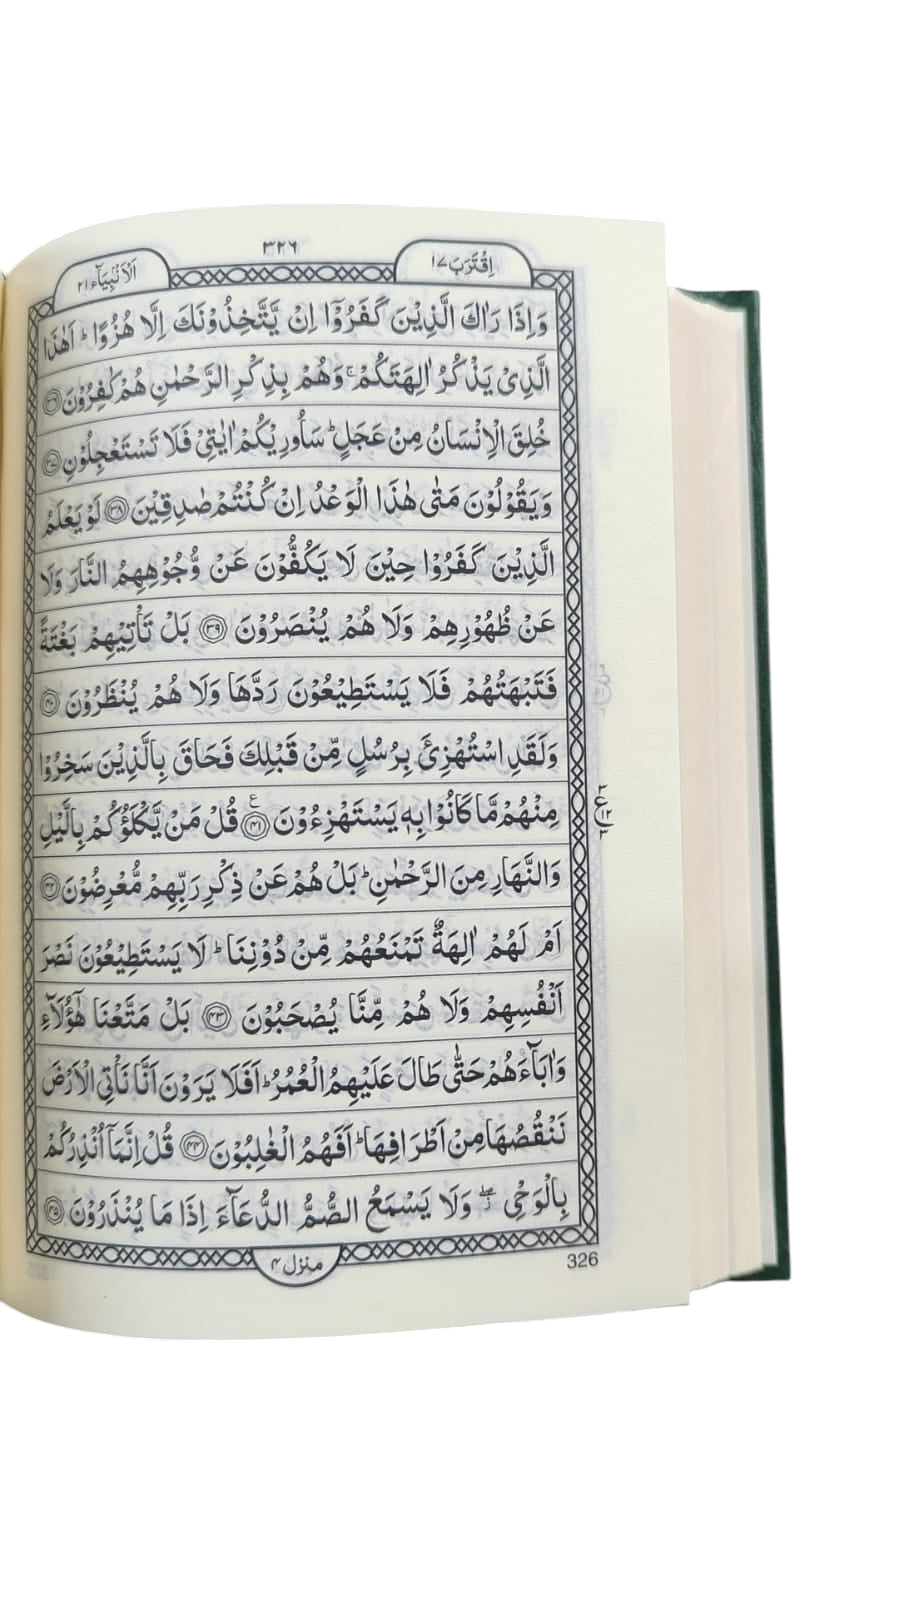 اِقْتَرَبَ ١٧
٣٢٦
اَلْاَنْبِيَآء ٢١
وَاِذَا رَاٰكَ الَّذِيْنَ كَفَرُوْٓا اِنْ يَّتَّخِذُوْنَكَ اِلَّا هُزُوًا ؕ اَهٰذَا
الَّذِيْ يَذْكُرُ اٰلِهَتَكُمْ ۚ وَهُمْ بِذِكْرِ الرَّحْمٰنِ هُمْ كٰفِرُوْنَ ﴿۳۶﴾
خُلِقَ الْاِنْسَانُ مِنْ عَجَلٍ ؕ سَاُورِيْكُمْ اٰيٰتِيْ فَلَا تَسْتَعْجِلُوْنِ ﴿۳۷﴾
وَيَقُوْلُوْنَ مَتٰى هٰذَا الْوَعْدُ اِنْ كُنْتُمْ صٰدِقِيْنَ ﴿۳۸﴾ لَوْ يَعْلَمُ
الَّذِيْنَ كَفَرُوْا حِيْنَ لَا يَكُفُّوْنَ عَنْ وُّجُوْهِهِمُ النَّارَ وَلَا
عَنْ ظُهُوْرِهِمْ وَلَا هُمْ يُنْصَرُوْنَ ﴿۳۹﴾ بَلْ تَاْتِيْهِمْ بَغْتَةً
فَتَبْهَتُهُمْ فَلَا يَسْتَطِيْعُوْنَ رَدَّهَا وَلَا هُمْ يُنْظَرُوْنَ ﴿۴۰﴾
وَلَقَدِ اسْتُهْزِئَ بِرُسُلٍ مِّنْ قَبْلِكَ فَحَاقَ بِالَّذِيْنَ سَخِرُوْا
مِنْهُمْ مَّا كَانُوْا بِهٖ يَسْتَهْزِءُوْنَ ﴿۴۱﴾ ع قُلْ مَنْ يَّكْلَؤُكُمْ بِالَّيْلِ
٣ ع ١٢ ٢
وَالنَّهَارِ مِنَ الرَّحْمٰنِ ؕ بَلْ هُمْ عَنْ ذِكْرِ رَبِّهِمْ مُّعْرِضُوْنَ ﴿۴۲﴾
اَمْ لَهُمْ اٰلِهَةٌ تَمْنَعُهُمْ مِّنْ دُوْنِنَا ؕ لَا يَسْتَطِيْعُوْنَ نَصْرَ
اَنْفُسِهِمْ وَلَا هُمْ مِّنَّا يُصْحَبُوْنَ ﴿۴۳﴾ بَلْ مَتَّعْنَا هٰٓؤُلَآءِ
وَاٰبَآءَهُمْ حَتّٰى طَالَ عَلَيْهِمُ الْعُمُرُ ؕ اَفَلَا يَرَوْنَ اَنَّا نَاْتِى الْاَرْضَ
نَنْقُصُهَا مِنْ اَطْرَافِهَا ؕ اَفَهُمُ الْغٰلِبُوْنَ ﴿۴۴﴾ قُلْ اِنَّمَآ اُنْذِرُكُمْ
بِالْوَحْيِ ۖ وَلَا يَسْمَعُ الصُّمُّ الدُّعَآءَ اِذَا مَا يُنْذَرُوْنَ ﴿۴۵﴾
منزل ۴
326